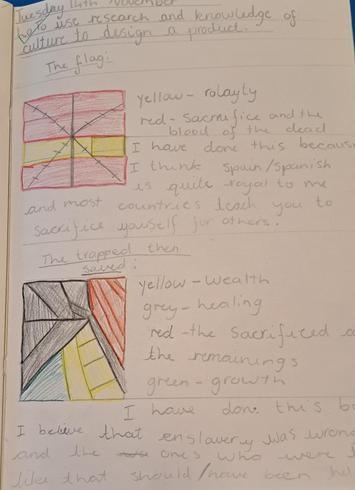 Tuesday 14th November
to use research and knowledge of
culture to design a product.
The flag:
yellow - rolayty
red - sacrafice and the
blood of the dead
I have done this because
I think spain/spanish
is quite royal to me
and most countries teach you to
sacrifice yourself for others.
The trapped then
saved:
yellow - wealth
grey - healing
red - the sacrificed
the remainings
green - growth
I have done this
I believe that enslavery was wrong
and the ones who were
like that should/have been